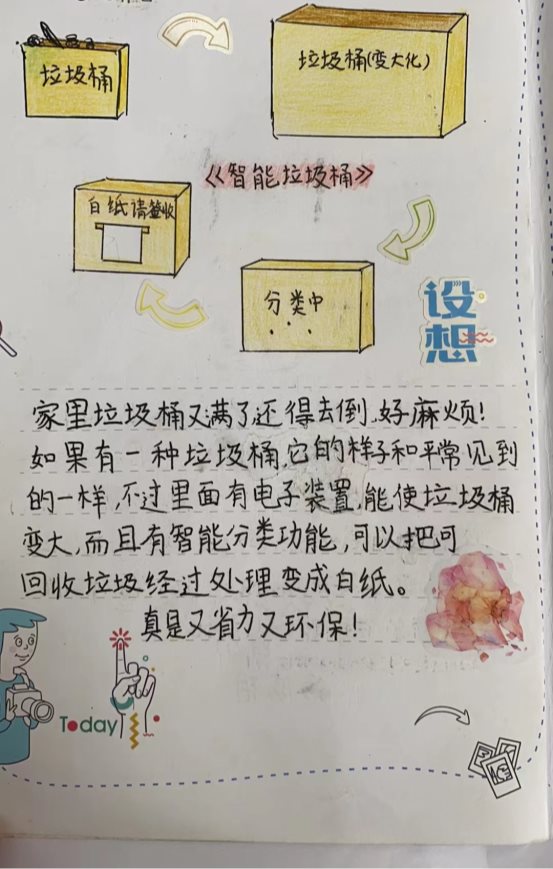 垃圾桶
垃圾桶(变大化)
《智能垃圾桶》
白纸请签收
分类中
...
设想
家里垃圾桶又满了还得去倒,好麻烦!
如果有一种垃圾桶,它的样子和平常见到
的一样,不过里面有电子装置,能使垃圾桶
变大,而且有智能分类功能,可以把可
回收垃圾经过处理变成白纸。
真是又省力又环保!
Today